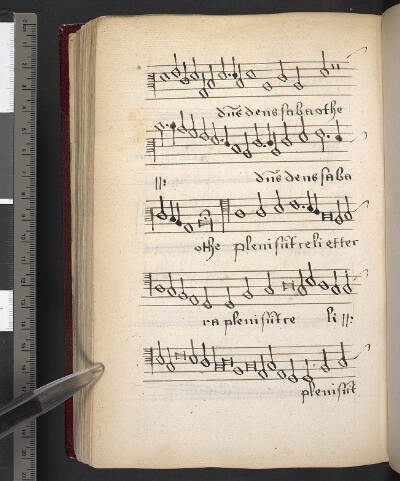 dñs deus sabaothe
dñs deus saba
othe pleni sũt celi et ter
ra pleni sũt ce li
pleni sũt